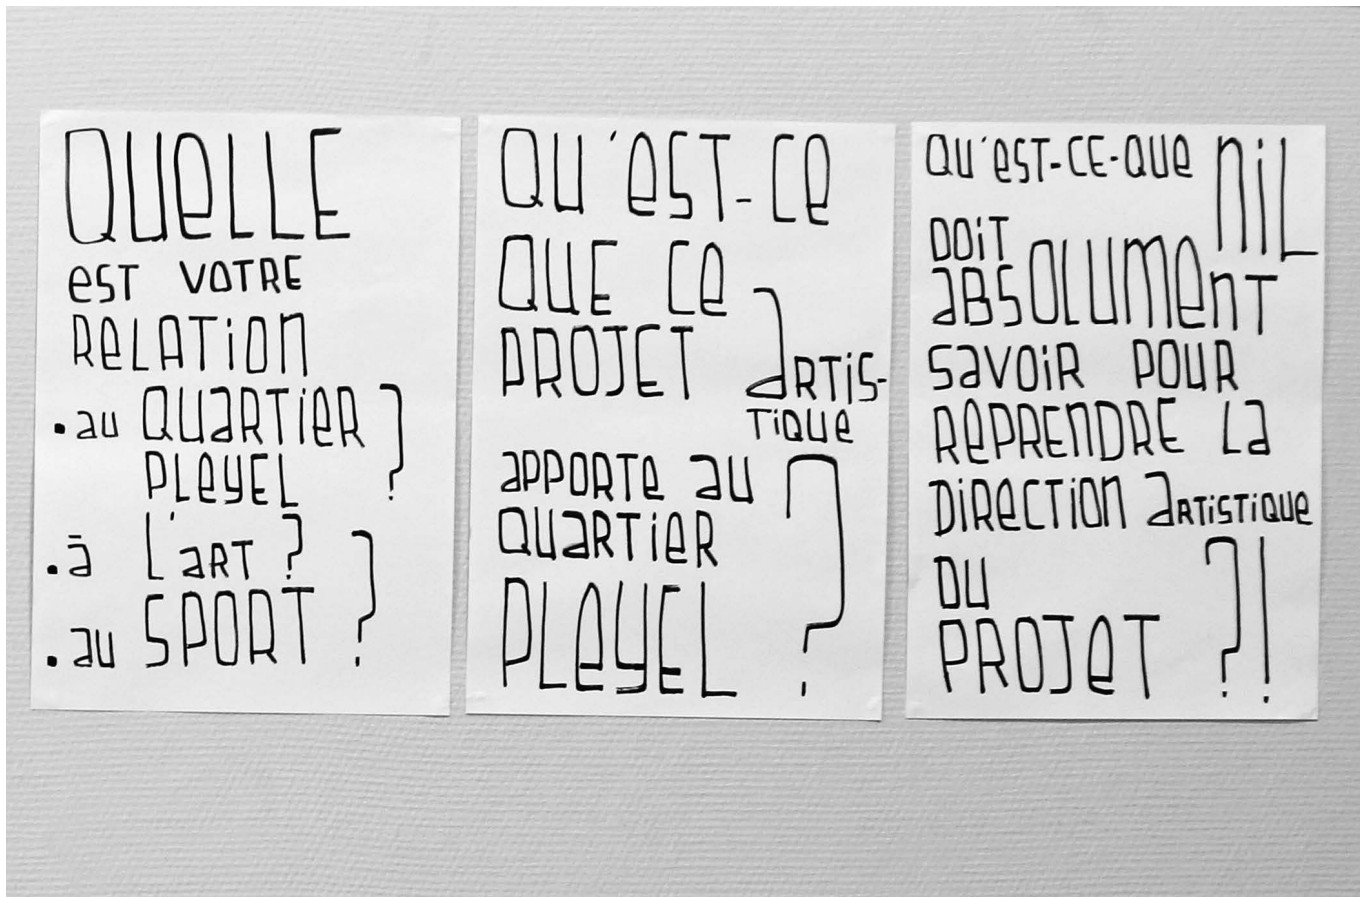 QUELLE
EST VOTRE
RELATION
. AU QUARTIER ?
PLEYEL
. à L'ART ?
. AU SPORT ?
QU'EST-CE
QUE CE
PROJET ARTIS-
TIQUE
APPORTE AU
QUARTIER
PLEYEL ?
QU'EST-CE-QUE NIL
DOIT
ABSOLUMENT
SAVOIR POUR
REPRENDRE LA
DIRECTION ARTISTIQUE
DU
PROJET ?!